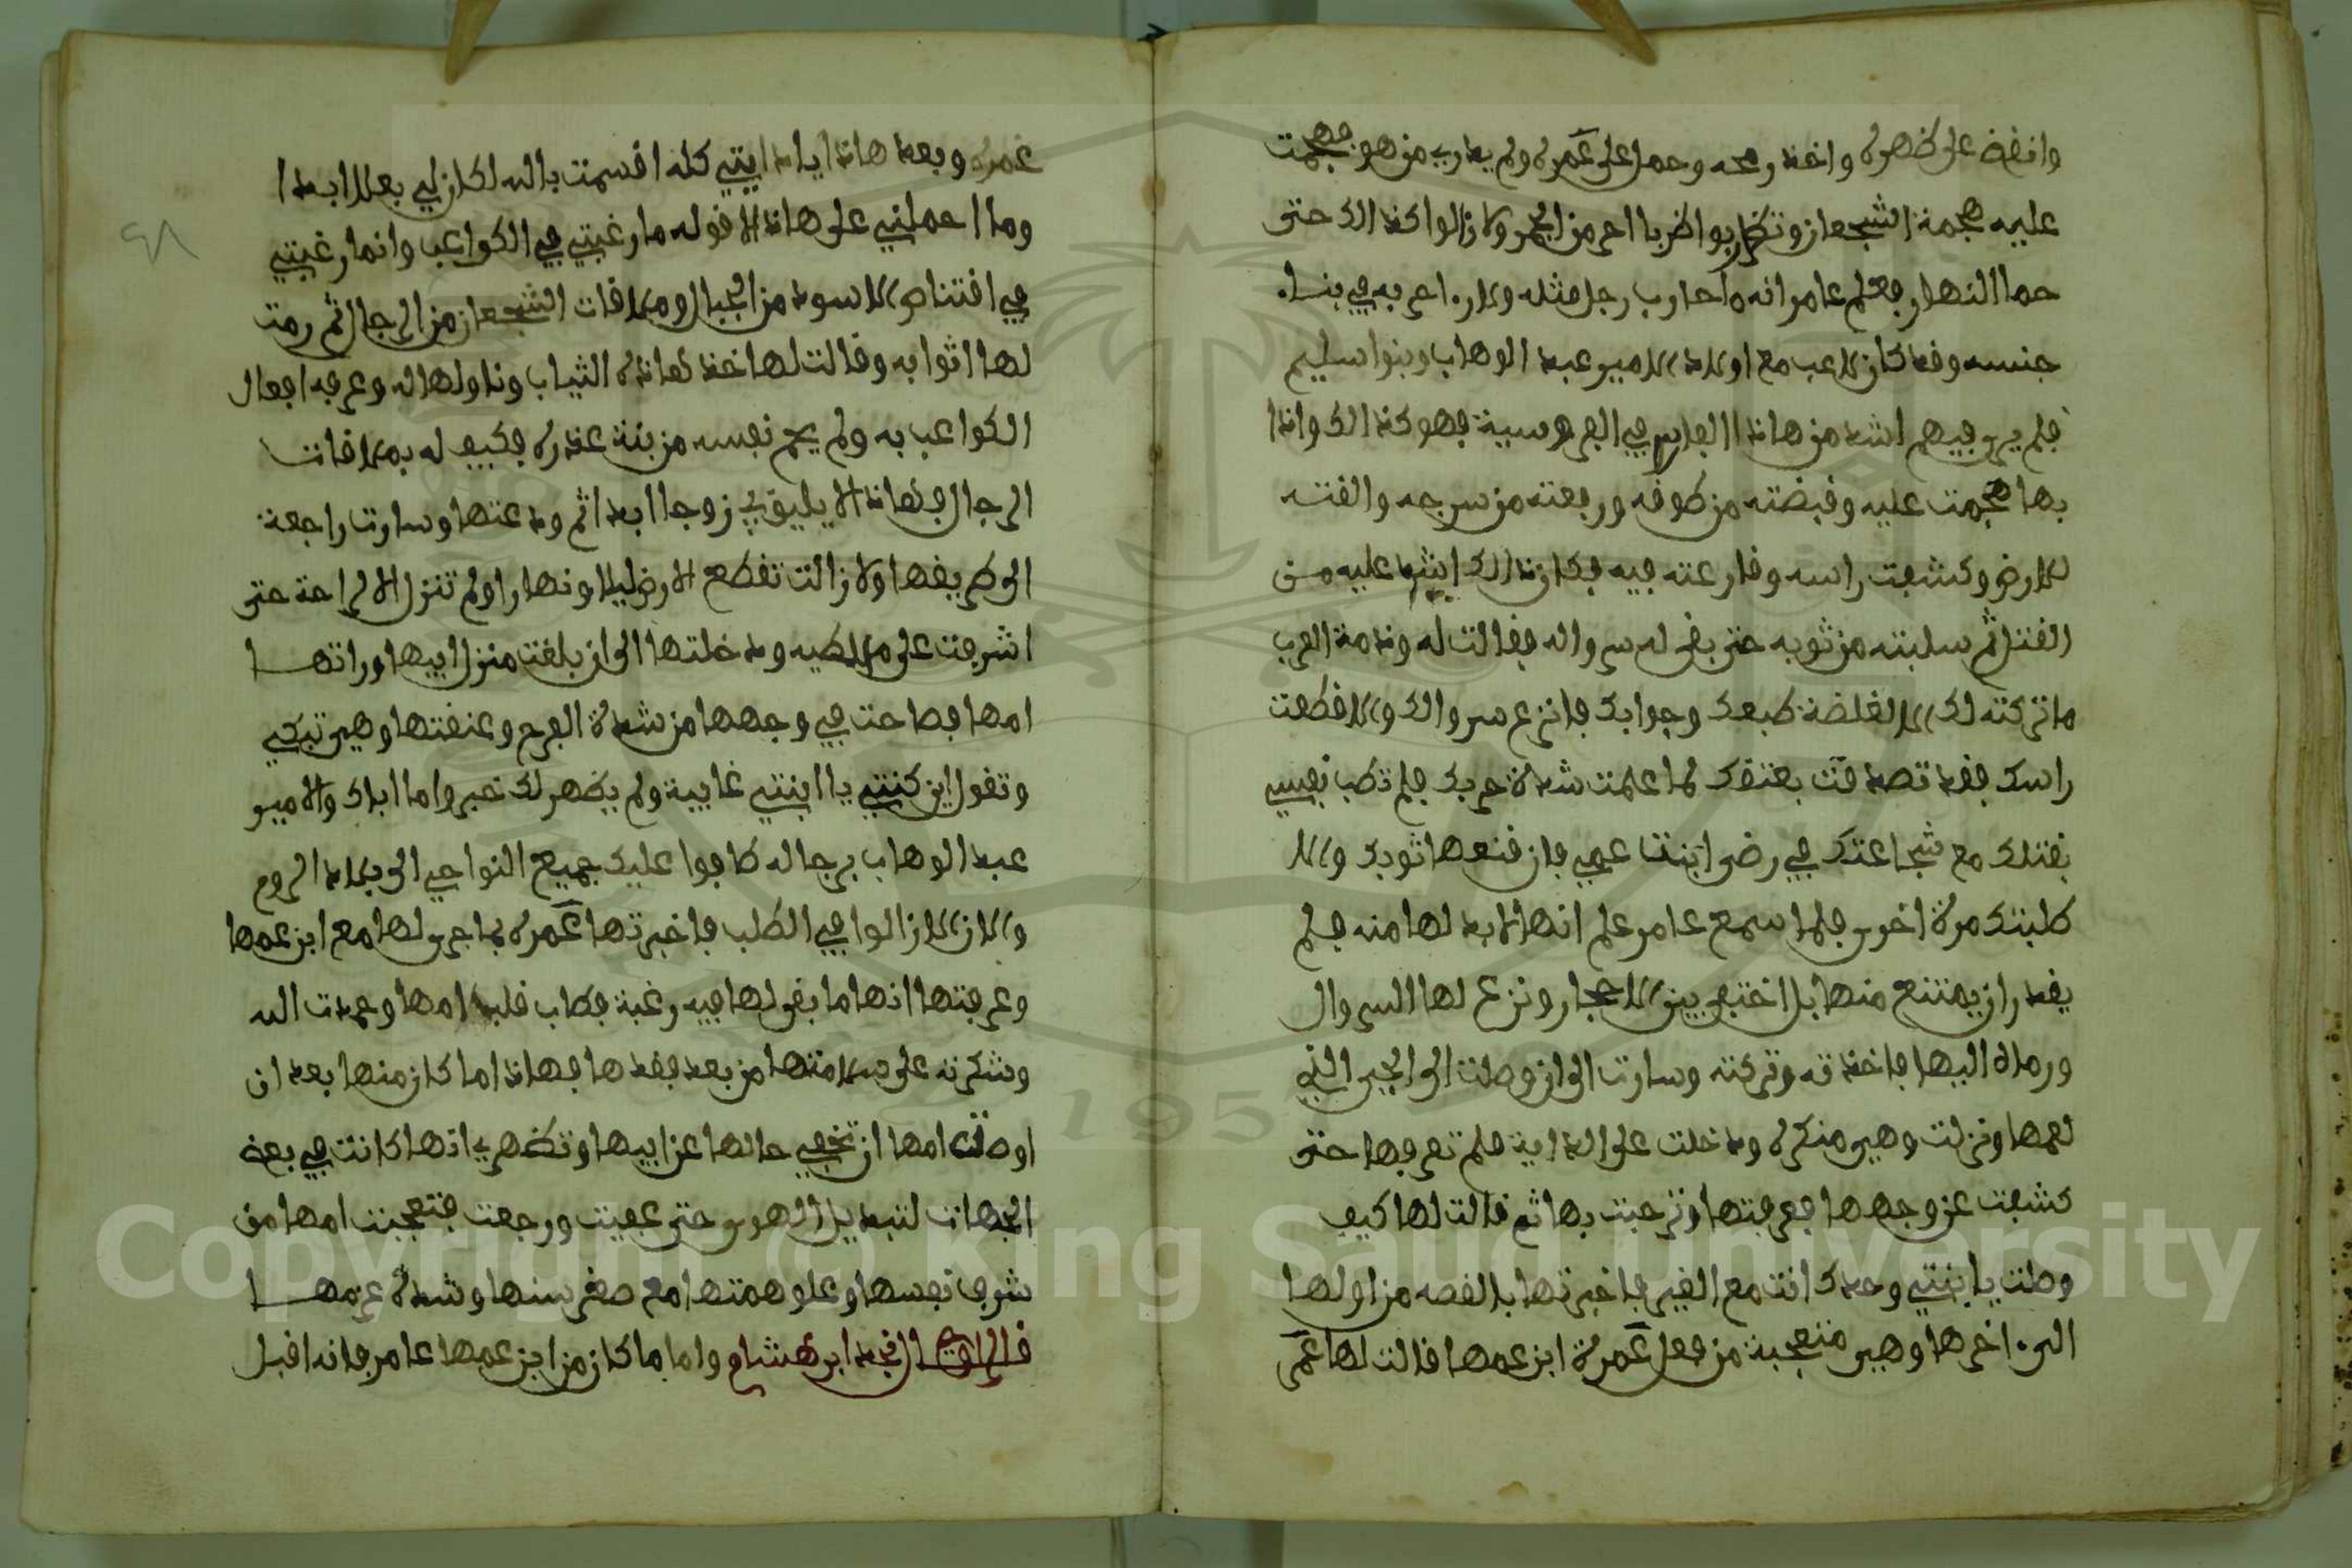 وانقض على ظهره واخذ رمحه وحمل على غمره ولم يدرى من هو فهجمت
عليه هجمة الشجعان وتضاربوا ضربا احر من الجمر ولا زالوا كذالك حتى
حما النهار فعلم عامر انه ما حارب رجل مثله ولا راى به في بنا
جنسه وقد كان لاعب مع اولاد الامير عبد الوهاب وبنوا سليم
فلم يرى فيهم اشد من هاذا الفارس في الفروسية فهو كذالك واذا
بها هجمت عليه وقبضته من طوقه ورفعته من سرجه والقته
للارض وكشفت راسه وقارعته فيه فكان ذالك اشد عليه من
القتل ثم سلبته من ثوبه حتى بقى له سرواله فقالت له وذمة العرب
ما تركته لك الا لغلضة طبعك وجوابك فانزع سروالك والا قطعت
راسك فقد تصدقت بعتقك لما علمت شدة حربك فلم تطب نفسي
بقتلك مع شجاعتك في رضى ابنت عمي فان قنعها ثوبك والا
طلبتك مرة اخرى فلما سمع عامر علم انها لا بد لها منه فلم
يقدر ان يمتنع منها بل اختفى بين الاحجار ونزع لها السروال
ورماه اليها فاخذته وتركته وسارت الى ان وصلت الى الحي الذي
لعمها ونزلت وهي منكره ودخلت على الداية فلم تعرفها حتى
كشفت عن وجهها فعرفتها وترحبت بها ثم قالت لها كيف
وصلت يا بنتي وحدك انت مع الغير فاخبرتها بالقصه من اولها
الى اخرها وهي متعجبة من فعل غمرة ابن عمها قالت لها غمر
غمره وبعد هاذا يا دايتي كله اقسمت بالله لا كان لي بعلا ابدا
وما احملني على هاذا الا قوله ما رغبتي في الكواعب وانما رغبتي
في اقتناص الاسود من الجبال وملاقات الشجعان من الرجال ثم رمت
لها اثوابه وقالت لها خذ هاذه الثياب وناولها له وعرفه افعال
الكواعب به ولم يحم نفسه من بنة عذره فكيف له بملاقات
الرجال فهاذا لا يليق بي زوجا ابدا ثم ودعتها وسارت راجعة
الى طريقها ولا زالت تقطع الارض ليلا ونهارا ولم تنزل لا لراحة حتى
اشرفت على ملطيه ودخلتها الى ان بلغت منزل ابيها وراتها
امها فصاحت في وجهها من شدة الفرح وعنقتها وهي تبكي
وتقول اين كنتي يا ابنتي غايبة ولم يظهر لك خبر واما اباك والامير
عبد الوهاب برجاله طافوا عليك جميع النواحي الى بلاد الروم
والان لا زالوا في الطلب فاخبرتها غمره بما جرى لها مع ابن عمها
وعرفتها انها ما بقى لها فيه رغبة فطاب قلب امها وحمدت الله
وشكرته على سلامتها من بعد فقدها فهاذا ما كان منها بعد ان
اوصلت امها ان تخفي حالها عن ابيها وتظهر انها كانت في بعض
الجهات لتبديل الهوى حتى عفيت ورجعت فتعجبت امها من
شرف نفسها وعلو همتها مع صغر سنها وشدة عزمها
قال الراوي نجد ابن هشام واما ما كان من ابن عمها عامر فانه اقبل
٤٨
Copyright © King Saud University
195